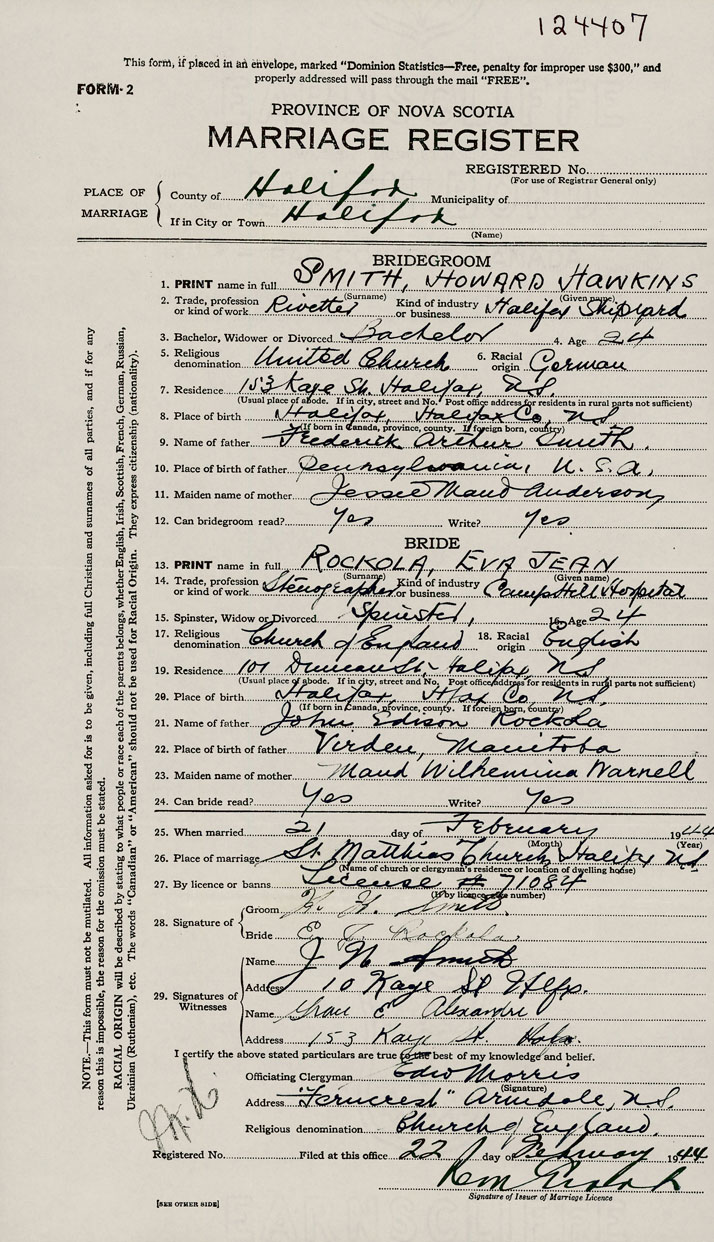 124407
This form, if placed in an envelope, marked "Dominion Statistics—Free, penalty for improper use $300," and
properly addressed will pass through the mail "FREE".
FORM-2
PROVINCE OF NOVA SCOTIA
MARRIAGE REGISTER
REGISTERED No.
(For use of Registrar General only)
PLACE OF MARRIAGE
County of Halifax Municipality of
If in City or Town Halifax
(Name)
BRIDEGROOM
1. PRINT name in full SMITH, HOWARD HAWKINS
(Surname) (Given name)
2. Trade, profession or kind of work Rivetter Kind of industry or business Halifax Shipyard
3. Bachelor, Widower or Divorced Bachelor 4. Age 24
5. Religious denomination United Church 6. Racial origin German
7. Residence 153 Kaye St. Halifax, N.S.
(Usual place of abode. If in city, street and No. Post office address for residents in rural parts not sufficient)
8. Place of birth Halifax, Halifax Co, N.S.
(If born in Canada, province, county. If foreign born, country)
9. Name of father Frederick Arthur Smith
10. Place of birth of father Pennsylvania, U.S.A.
11. Maiden name of mother Jessie Maud Anderson
12. Can bridegroom read? Yes Write? Yes
BRIDE
13. PRINT name in full ROCKOLA, EVA JEAN
(Surname) (Given name)
14. Trade, profession or kind of work Stenographer Kind of industry or business Camp Hill Hospital
15. Spinster, Widow or Divorced Spinster, 16. Age 24
17. Religious denomination Church of England 18. Racial origin English
19. Residence 101 Duncan St. Halifax, N.S.
(Usual place of abode. If in city, street and No. Post office address for residents in rural parts not sufficient)
20. Place of birth Halifax, Hfax Co, N.S.
(If born in Canada, province, county. If foreign born, country)
21. Name of father John Edison Rockola
22. Place of birth of father Virden, Manitoba
23. Maiden name of mother Maud Wilhemina Warnell
24. Can bride read? Yes Write? Yes
25. When married 21 day of February 1944
(Month) (Year)
26. Place of marriage St. Matthias Church, Halifax N.S.
(Name of church or clergyman's residence or location of dwelling house)
27. By licence or banns License # 71084
(If by licence give number)
28. Signature of Groom H. H. Smith
Bride E J Rockola
29. Signatures of Witnesses
Name J H Smith
Address 10 Kaye St Hfx.
Name E Alexandre
Address 153 Kaye St.
I certify the above stated particulars are true to the best of my knowledge and belief.
Officiating Clergyman Edw Morris
(Signature)
Address "Ferncrest" Armdale, N.S.
Religious denomination Church of England.
Registered No. Filed at this office 22 day of February 1944
Signature of Issuer of Marriage Licence
[SEE OTHER SIDE]
NOTE.—This form must not be mutilated. All information asked for is to be given, including full Christian and surnames of all parties, and if for any
reason this is impossible, the reason for the omission must be stated.
RACIAL ORIGIN will be described by stating to what people or race each of the parents belongs, whether English, Irish, Scottish, French, German, Russian,
Ukrainian (Ruthenian), etc. The words "Canadian" or "American" should not be used for Racial Origin. They express citizenship (nationality).